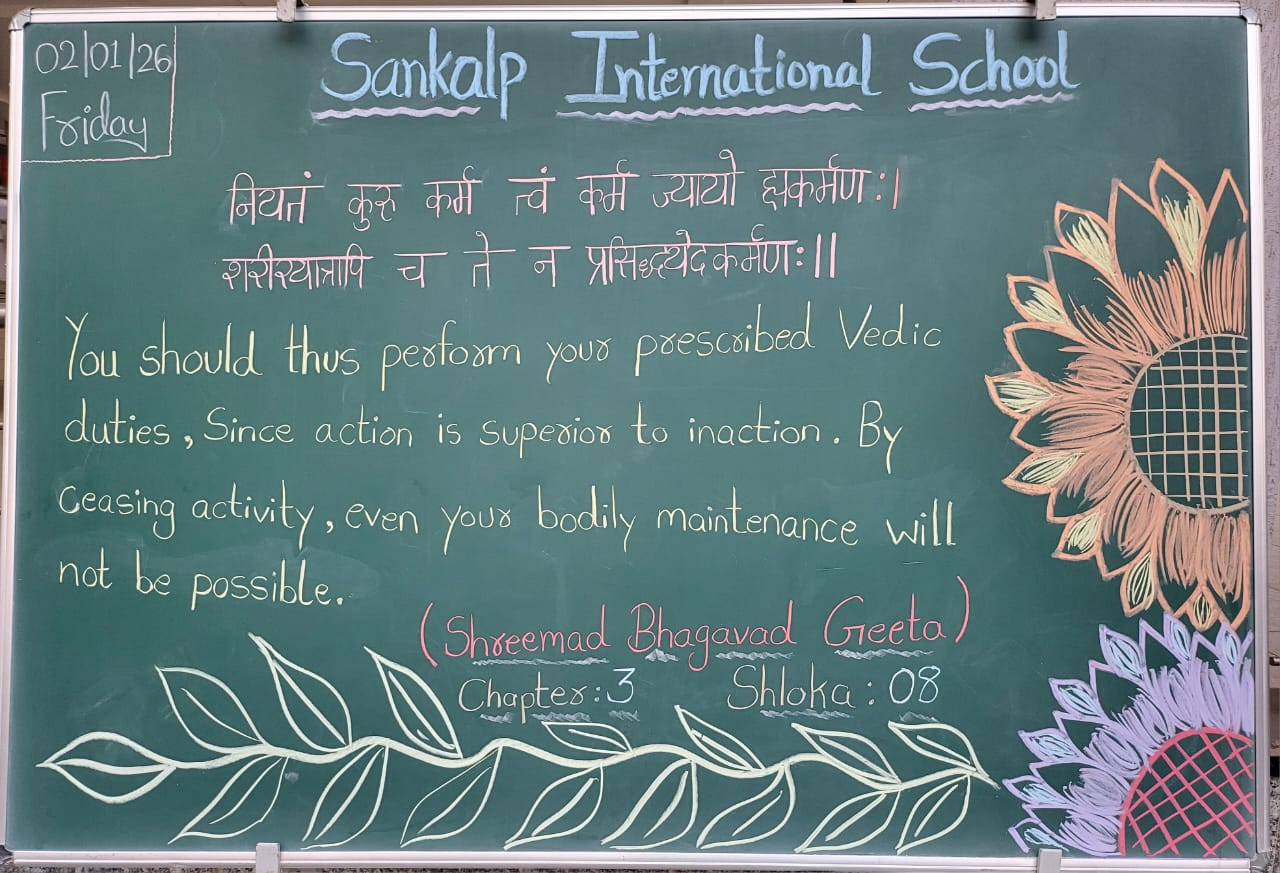 02/01/26
Friday
Sankalp International School
नियतं कुरु कर्म त्वं कर्म ज्यायो ह्यकर्मणः।
शरीरयात्रापि च ते न प्रसिद्ध्येदकर्मणः॥
You should thus perform your prescribed Vedic
duties, Since action is superior to inaction. By
Ceasing activity, even your bodily maintenance will
not be possible.
(Shreemad Bhagavad Geeta)
Chapter: 3 Shloka: 08